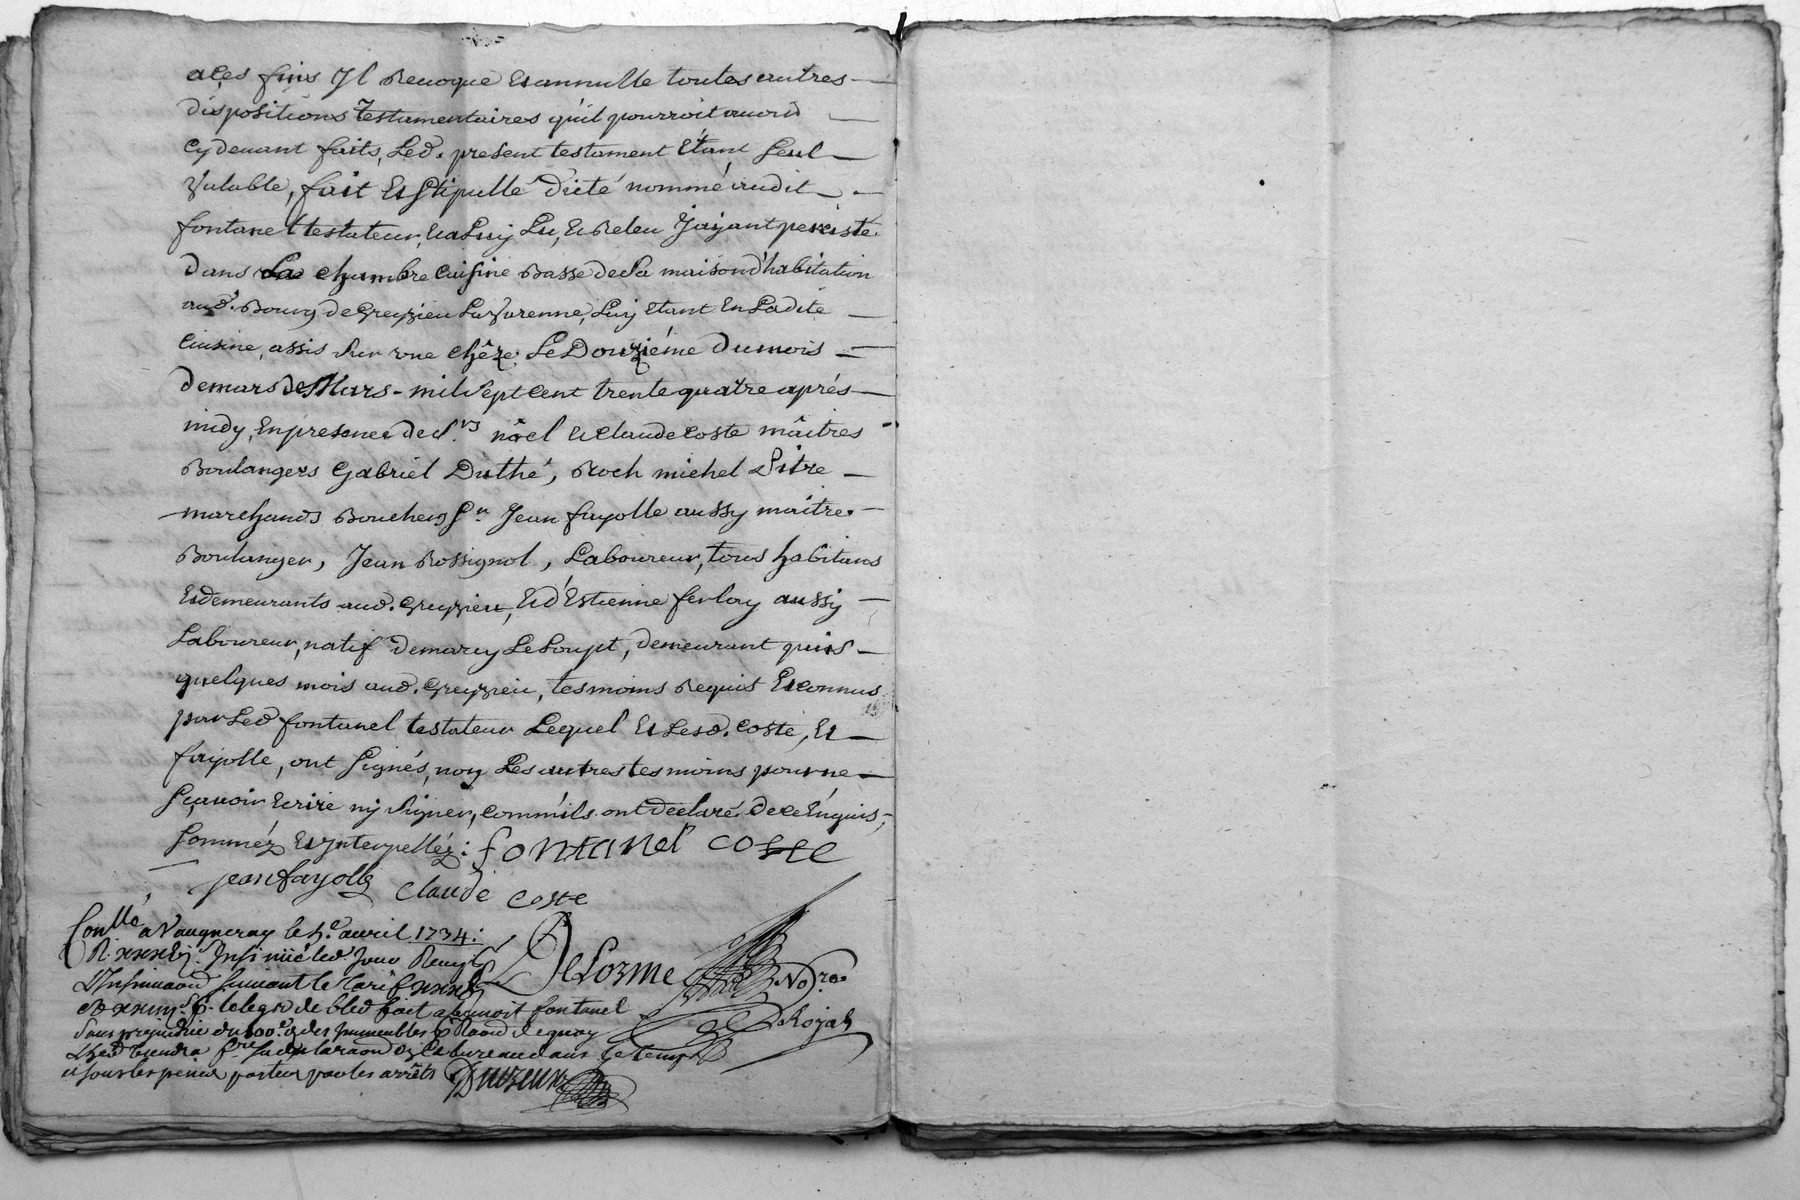 aces fins Il Revoque et annulle toutes autres
dispositions testamentaires qu'il pourroit avoir
cy devant faits, Led. present testament Etant seul
valable, fait Et stipullé dicté nommé audit
fontanel testateur, Et a Luy Lu, et Releu y ayant persisté
dans La chambre cuisine Basse de sa maison d'habitation
aud. Bourg de Greyzieu La Varenne, Luy Etant En Ladite
cuisine, assis sur une chêze Le Douziéme du mois
de mars de Mars - mil sept cent trente quatre aprés
midy, En presence de s.rs nôel et claude coste mâitres
Boulangers Gabriel Duthé, Roch michel Pitre
marchands Bouchers Sr. Jean fayolle aussy maitre
Boulanger, Jean Rossignol, Laboureur, tous habitans
Et demeurants aud. Greyzieu, Et d'Estienne ferlay aussy
Laboureur, natif de marcy Le Loupt, demeurant puis
quelques mois aud. Greyzieu, tesmoins Requis Et connus
par Led fontanel testateur Lequel Et Lesd. coste, Et
fayolle, ont signés, non Les autres tesmoins pour ne
sçavoir Ecrire ny signer, comm'ils ont declaré de ce Enquis,
sommez Et ynterpellez: fontanel coste
jean fayolle claude coste
Conllé a Vaugneray le 5.e avril 1734:
Delorme No.re
Royal
suivant le Tarif
le legs de bled fait a benoit fontanel
sans prejudice du 100.e d. des Immeubles
bureau dans le temps
et sous les peines portées par les arrêts